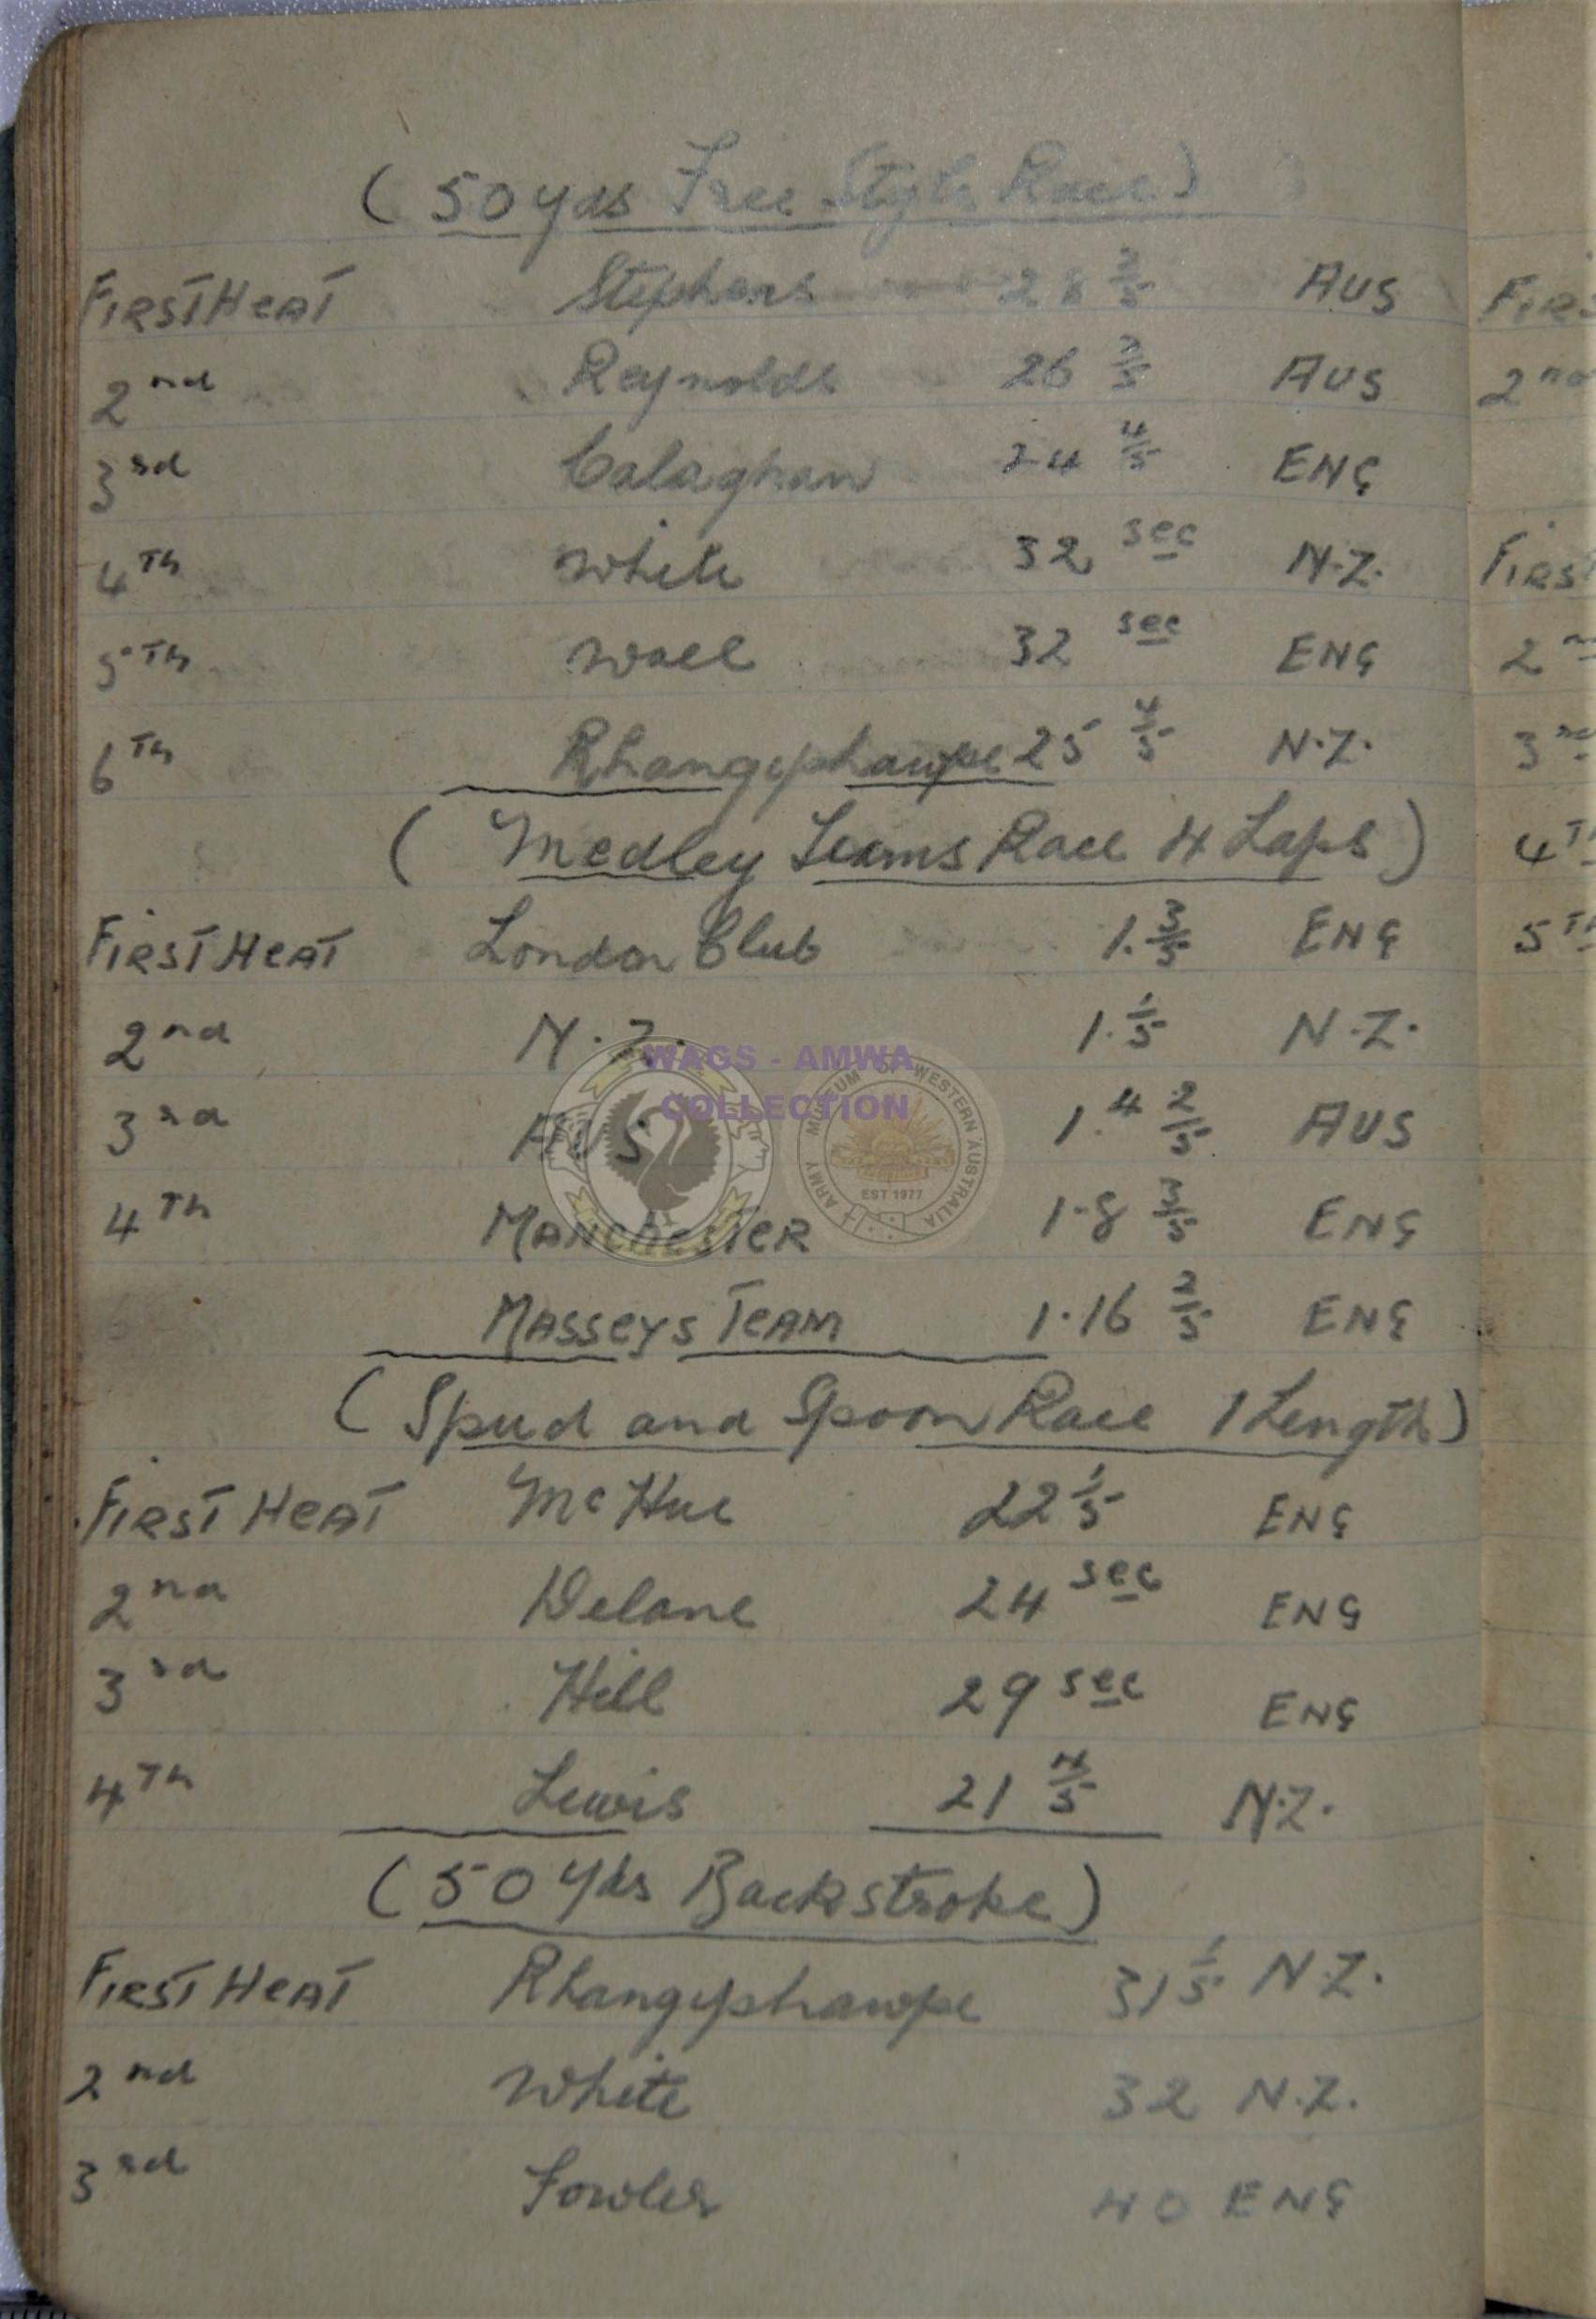 ( 50 yds Free Style Race )
FIRST HEAT Stephens 28 2/5 AUS
2nd Reynolds 26 2/5 AUS
3rd Calaghan 24 4/5 ENG
4TH White 32 sec N.Z.
5TH Wall 32 sec ENG
6TH Rhangiphawpe 25 4/5 N.Z.
( Medley Teams Race 4 Laps )
FIRST HEAT London Club 1. 3/5 ENG
2nd N.Z. 1. 1/5 N.Z.
3rd AUS 1.4 2/5 AUS
4TH MANCHESTER 1.8 3/5 ENG
MASSEYS TEAM 1.16 2/5 ENG
( Spud and Spoon Race 1 Length )
FIRST HEAT McHue 22 1/5 ENG
2nd Delane 24 sec ENG
3rd Hill 29 sec ENG
4TH Lewis 21 4/5 N.Z.
( 50 Yds Backstroke )
FIRST HEAT Rhangiphawpe 31 1/5 N.Z.
2nd White 32 N.Z.
3rd Fowler 40 ENG
WAGS - AMWA
COLLECTION
ARMY MUSEUM OF WESTERN AUSTRALIA
EST 1977
FIRS
2nd
FIRST
2
3
4T
5TH